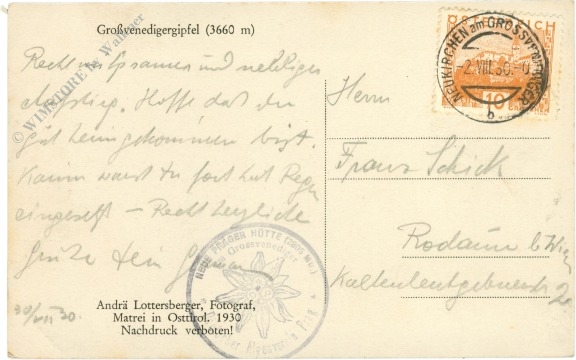 Großvenedigergipfel (3660 m)
© WIMSTORE
Recht mühsamer und nebliger
Aufstieg. Hoffe daß du
gut heimgekommen bist.
Kaum warst du fort hat Regen
eingesetzt – Recht herzliche
Grüße dein
30/VII 30.
Andrä Lottersberger, Fotograf,
Matrei in Osttirol. 1930
Nachdruck verboten!
NEUE PRAGER HÜTTE
Grossvenediger
ÖSTERREICH
10
NEUKIRCHEN am GROSSVENEDIGER
-2.VIII.30.
b
Herrn
Franz Schick
Rodaun b. Wien
Kaltenleutgebnerstr
2